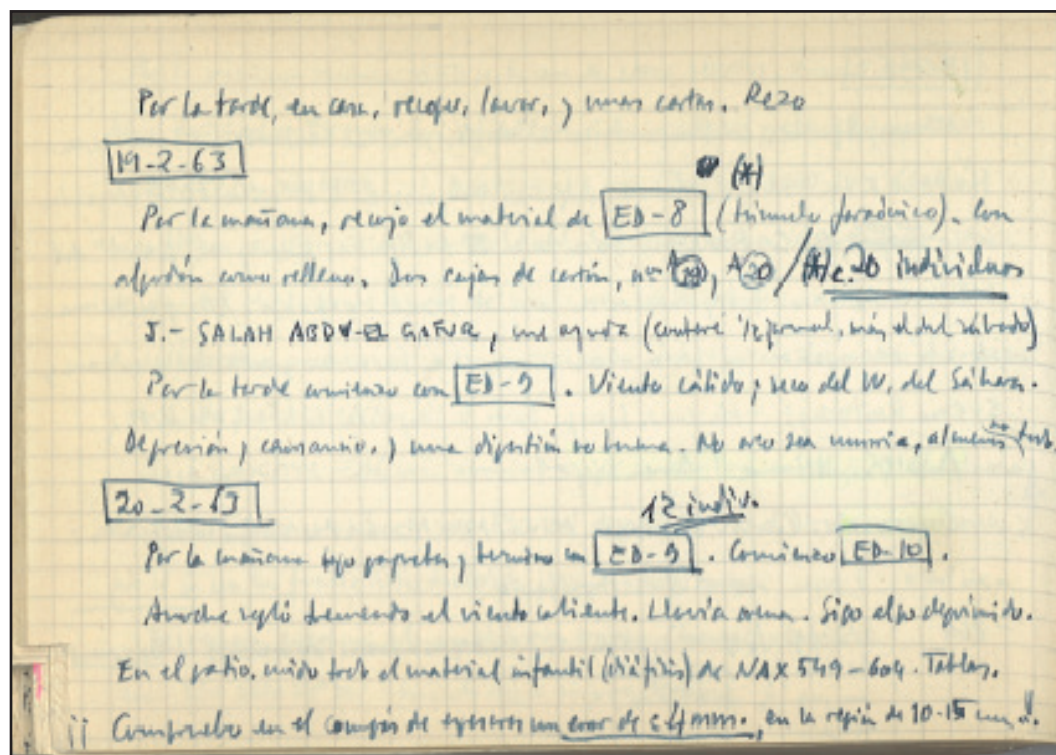 Por la tarde, en casa, recojo, lavar, y unas cartas. Rezo
19-2-63
(*)
Por la mañana, recojo el material de ED-8 (túmulo faraónico). Con
algodón como relleno. Dos cajas de cartón, nº A19, A20 / (*) c. 20 individuos
J.- SALAH ABDU-EL GAFUR, me ayuda (contaré 1/2 jornal, más el del sábado)
Por la tarde comienzo con ED-9. Viento cálido y seco del W. del Sáhara.
Depresión y cansancio, y una digestión no buena. No creo sea murria, al menos no toda.
20-2-63
12 indiv.
Por la mañana paquetes y termino con ED-9. Comienzo ED-10.
Anoche sopló tremendo el viento caliente. Llovía arena. Sigo algo deprimido.
En el patio, mido todo el material infantil (diáfisis) de NAX 549-604. Tablas.
¡¡ Compruebo en el compás de espesores un error de c 4 mm., en la región de 10-15 cm.!!